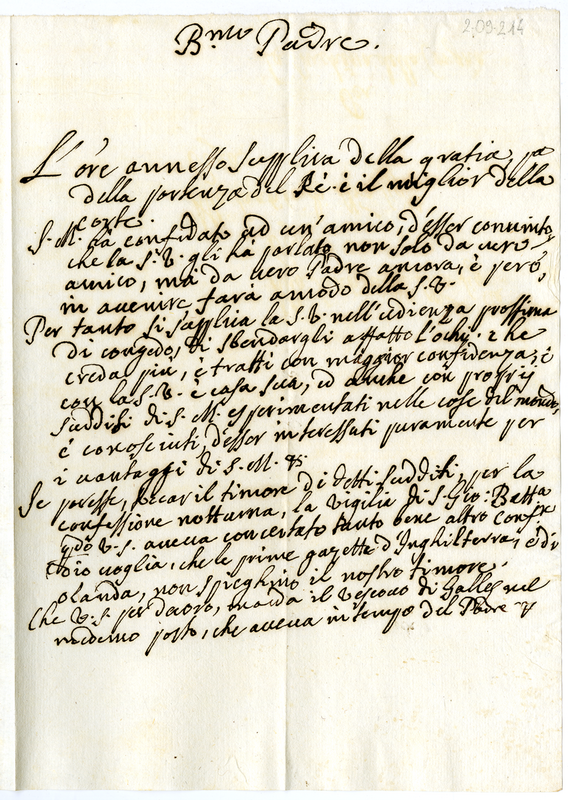 2-09-214
B.mo Padre.
L'ore annesso supplica della gratia, pa
della partenza del Rè. è il miglior della
corte.
S. M. hà confidato ad un'amico, d'esser convinto,
che la S. V. gli hà parlato non solo da vero
amico, ma da vero Padre ancora, è però,
in avenire farà a modo della S. V.
Per tanto si supplica la S. V. nell'udienza prossima
di congedo, di sbendargli affatto l'ochij. che
creda più, è tratti con maggior confidenza, è
con la S. V. è casa sua, ed anche con proprij
sudditi di S. M. esperimentati nelle cose del mondo,
è conosciuti, d'esser interessuti puramente per
i vantaggi di S. M. &
Se presse, recar il timore di detti sudditi, per la
confessione notturna, la vigilia di S. Gio: Batta
qdo V. S. aveva concertato tanto bene altro
Dio voglia, che le prime gazette d'Inghilterra, è di
olanda, non spieghino il nostro timore.
Che V. S. per davvero, manda il vescovo di Galles nel
medemo posto, che aveva in tempo del Padre &